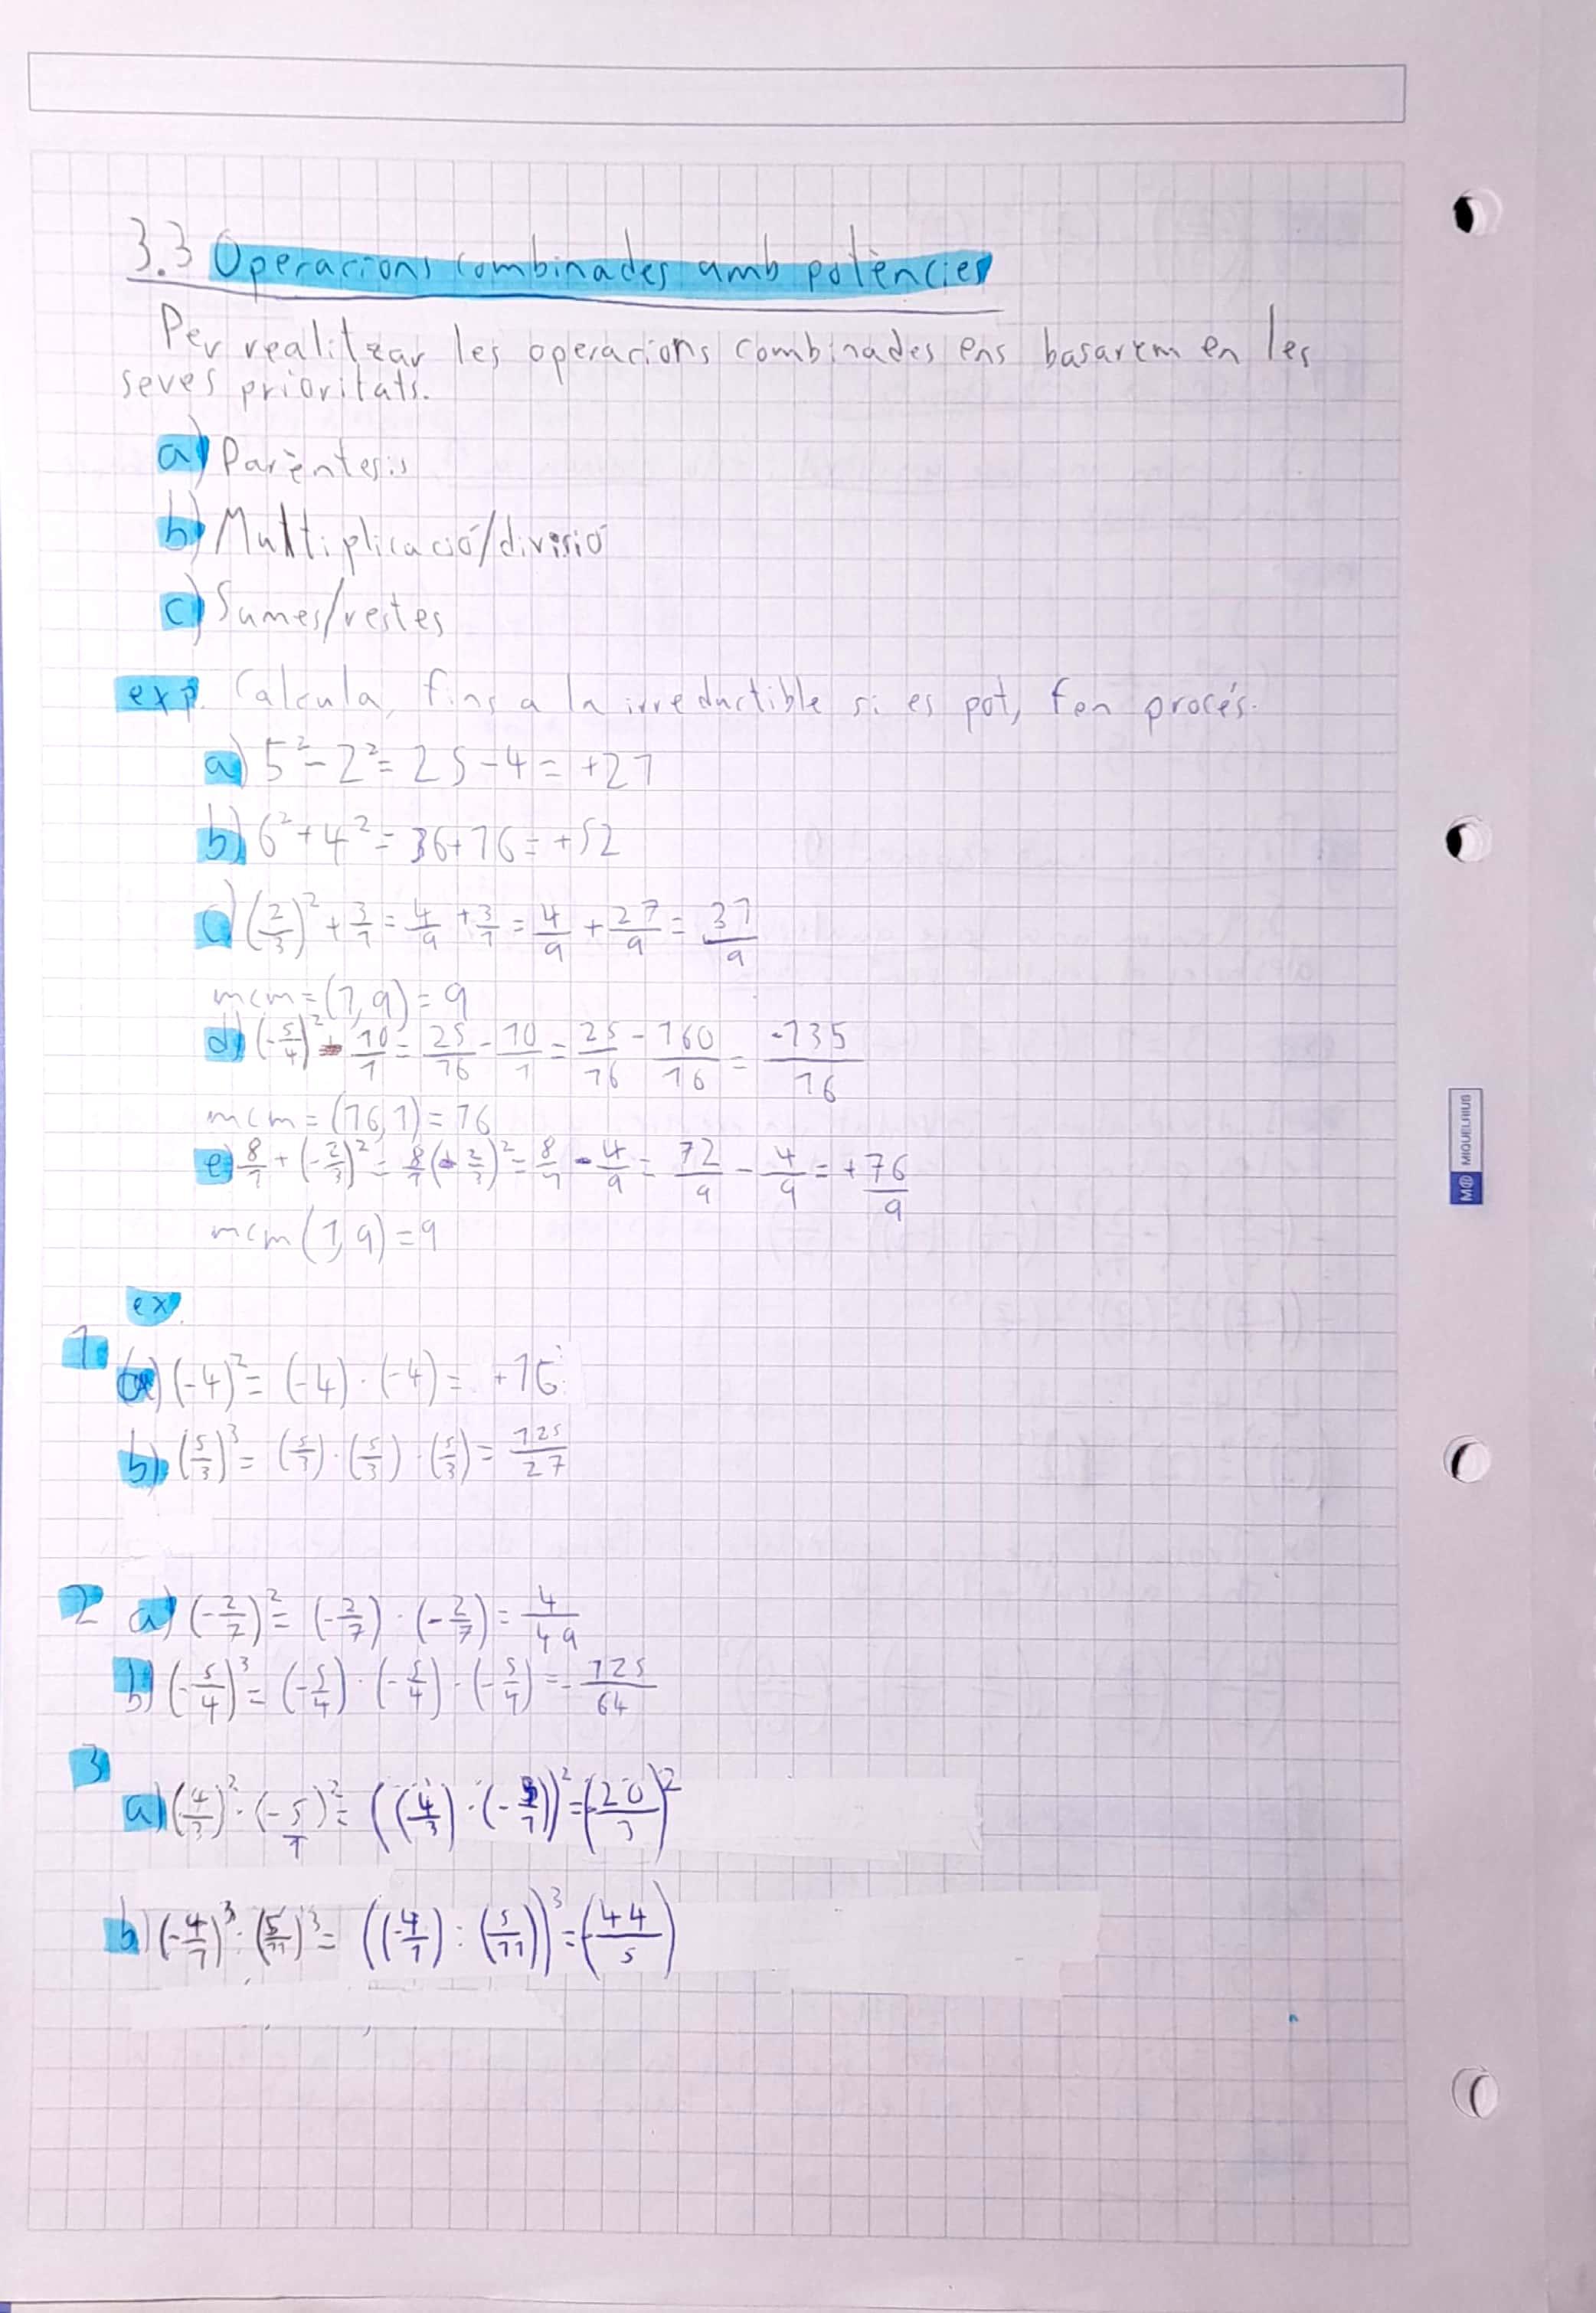 3.3 Operacions combinades amb potències
Per realitzar les operacions combinades ens basarem en les
seves prioritats.
a) Parèntesis
b) Multiplicació/divisió
c) Sumes/restes
exp. Calcula, fins a la irreductible si es pot, fen procés.
a) 5² - 2² = 25 - 4 = +21
b) 6² + 4² = 36 + 16 = +52
c) (2/3)² + 3/1 = 4/9 + 3/1 = 4/9 + 27/9 = 31/9
mcm = (1, 9) = 9
d) (-5/4)² - 10/1 = 25/16 - 10/1 = 25/16 - 160/16 = -135/16
mcm = (16, 1) = 16
e) 8/1 + (-2/3)² = 8/1 (- 2/3)² = 8/1 - 4/9 = 72/9 - 4/9 = +76/9
mcm (1, 9) = 9
ex.
1
a) (-4)² = (-4) · (-4) = +16
b) (5/3)³ = (5/3) · (5/3) · (5/3) = 125/27
2 a) (-2/7)² = (-2/7) · (-2/7) = 4/49
b) (-5/4)³ = (-5/4) · (-5/4) · (-5/4) = -125/64
3
a) (4/3)² · (-5/1)² = ((4/3) · (-5/1))² = (-20/3)²
b) (-4/1)³ : (5/11)³ = ((-4/1) : (5/11))³ = (-44/5)
M MIQUELRIUS